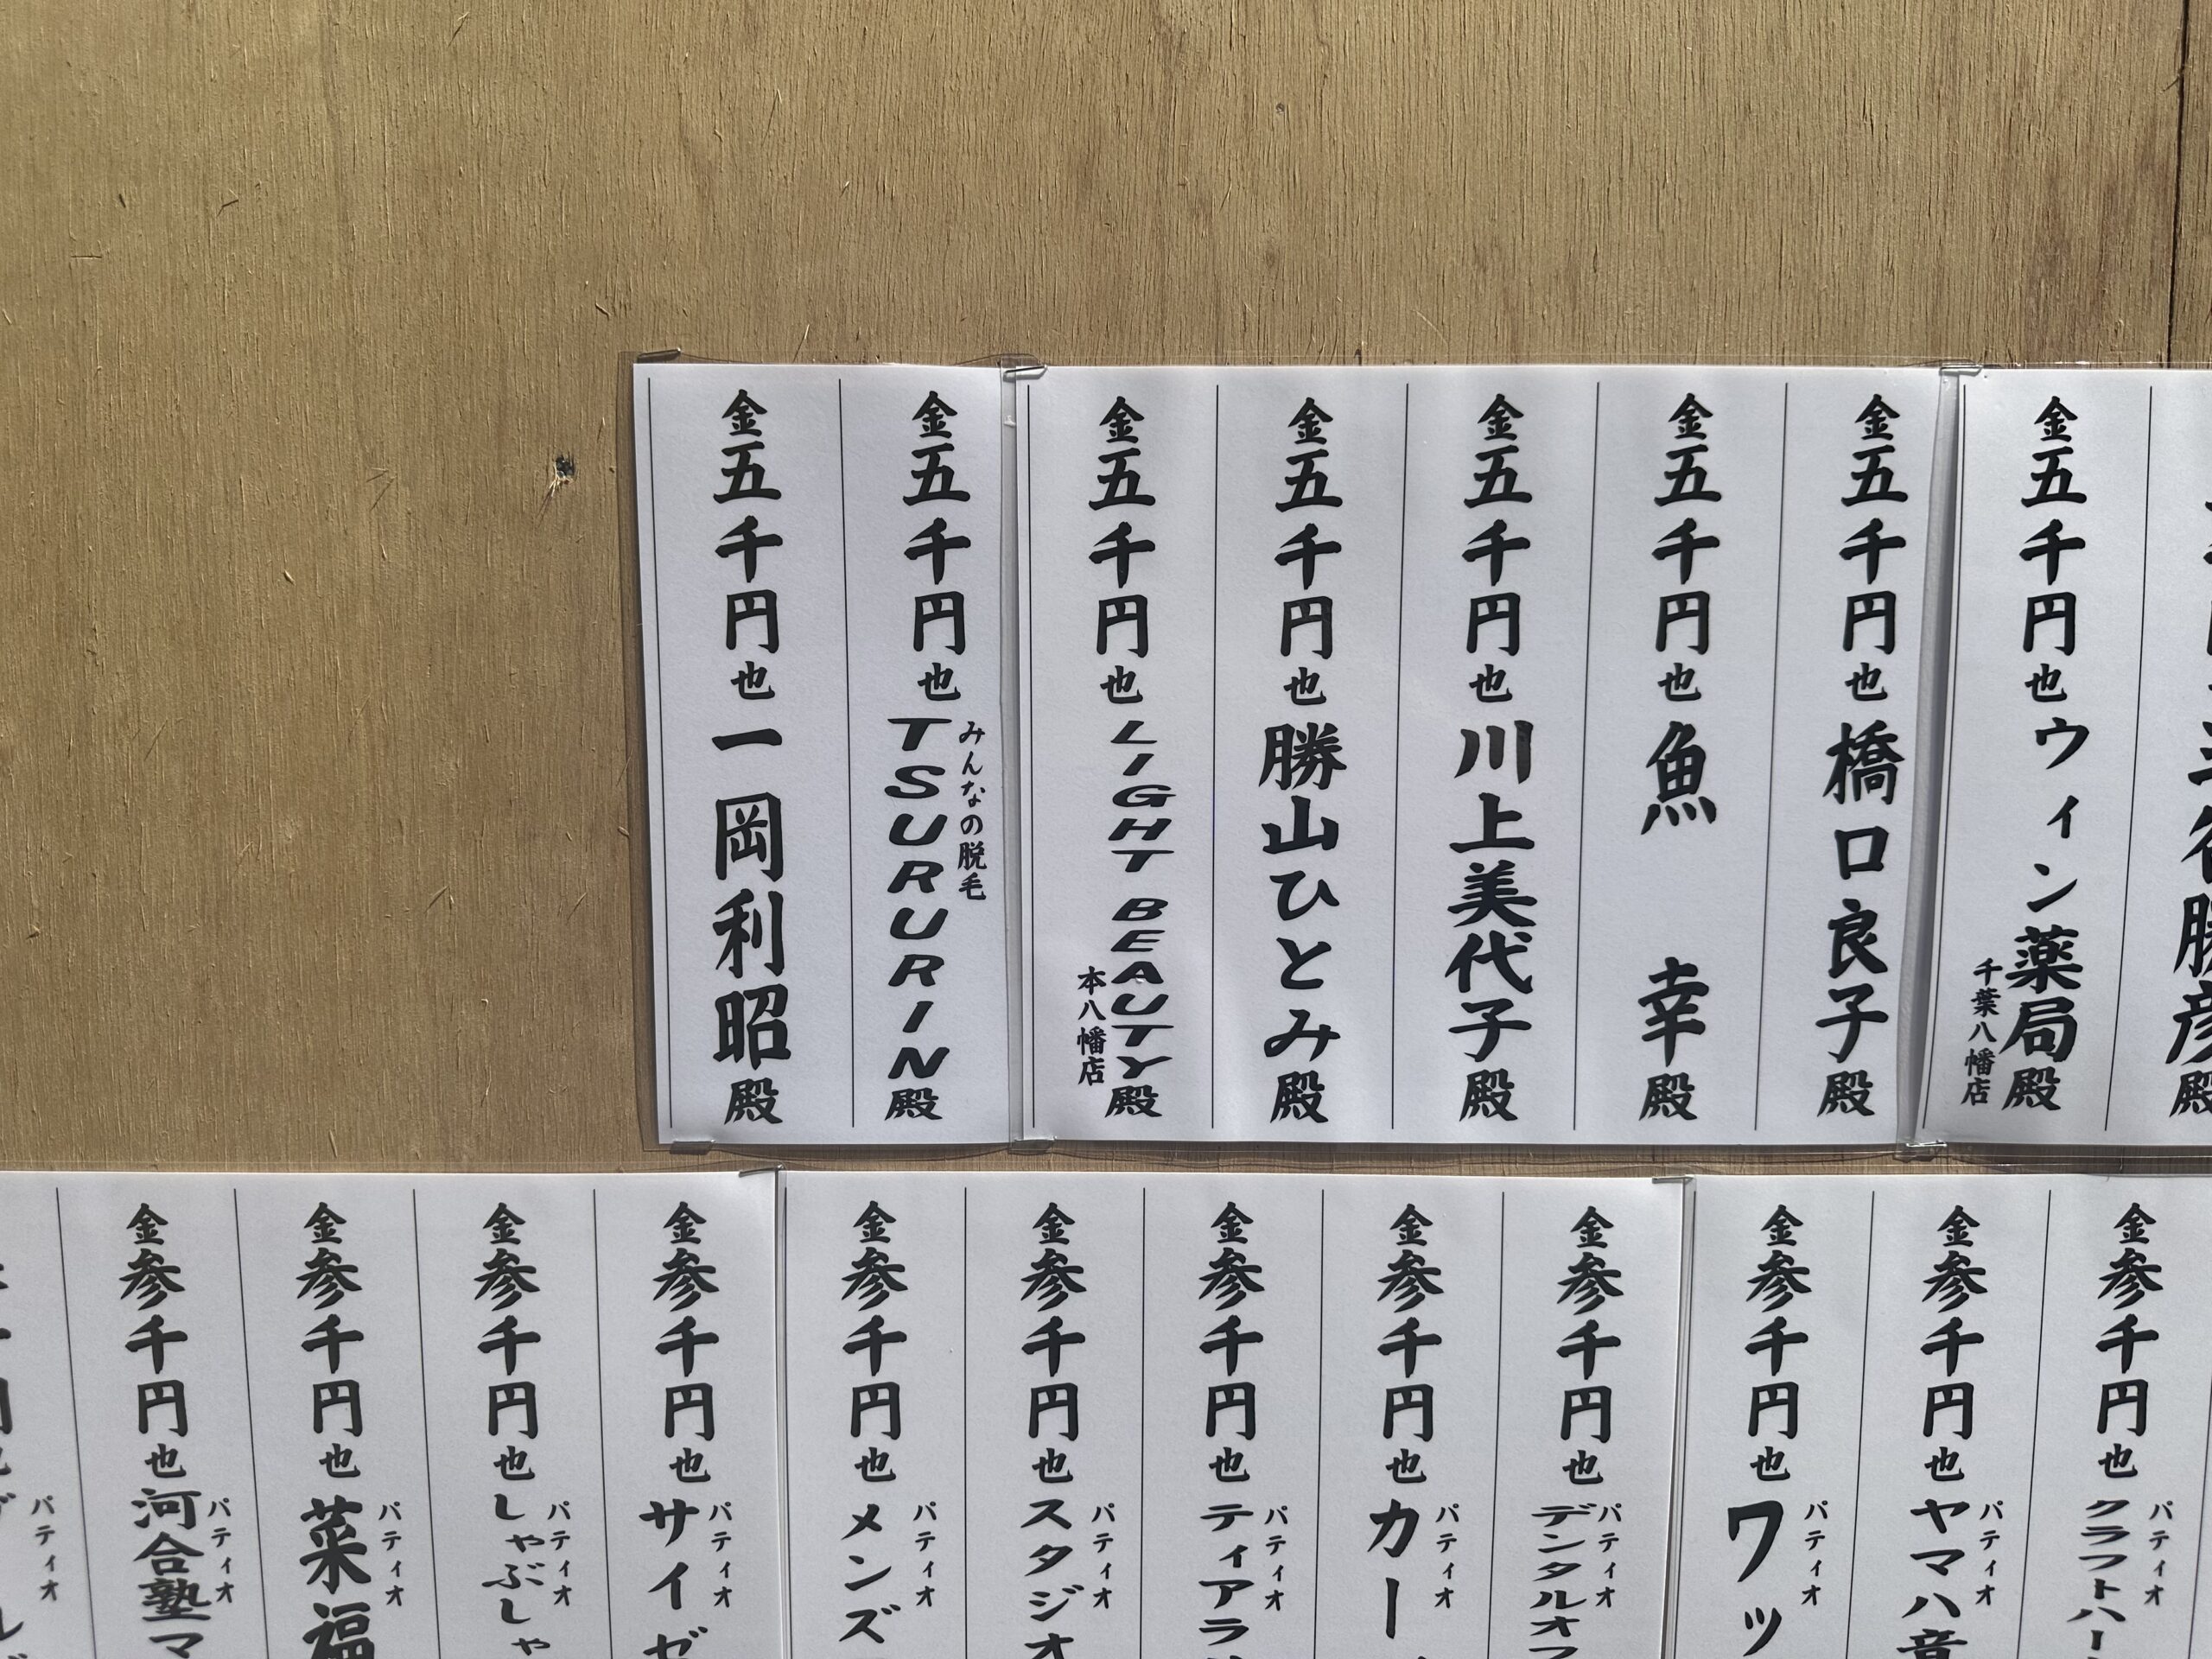 金五千円也
金五千円也 ウィン薬局 千葉八幡店 殿
金五千円也 橋口良子殿
金五千円也 魚 幸殿
金五千円也 川上美代子殿
金五千円也 勝山ひとみ殿
金五千円也 LIGHT BEAUTY 本八幡店 殿
金五千円也 みんなの脱毛 TSURURIN殿
金五千円也 一岡利昭殿
金参千円也 パティオ クラフトハー
金参千円也 パティオ ヤマハ音
金参千円也 パティオ ワッ
金参千円也 パティオ デンタルオフ
金参千円也 パティオ カー
金参千円也 パティオ ティアラ
金参千円也 パティオ スタジオ
金参千円也 パティオ メンズ
金参千円也 パティオ サイゼ
金参千円也 パティオ しゃぶしゃ
金参千円也 パティオ 菜福
金参千円也 パティオ 河合塾マ
パティオ